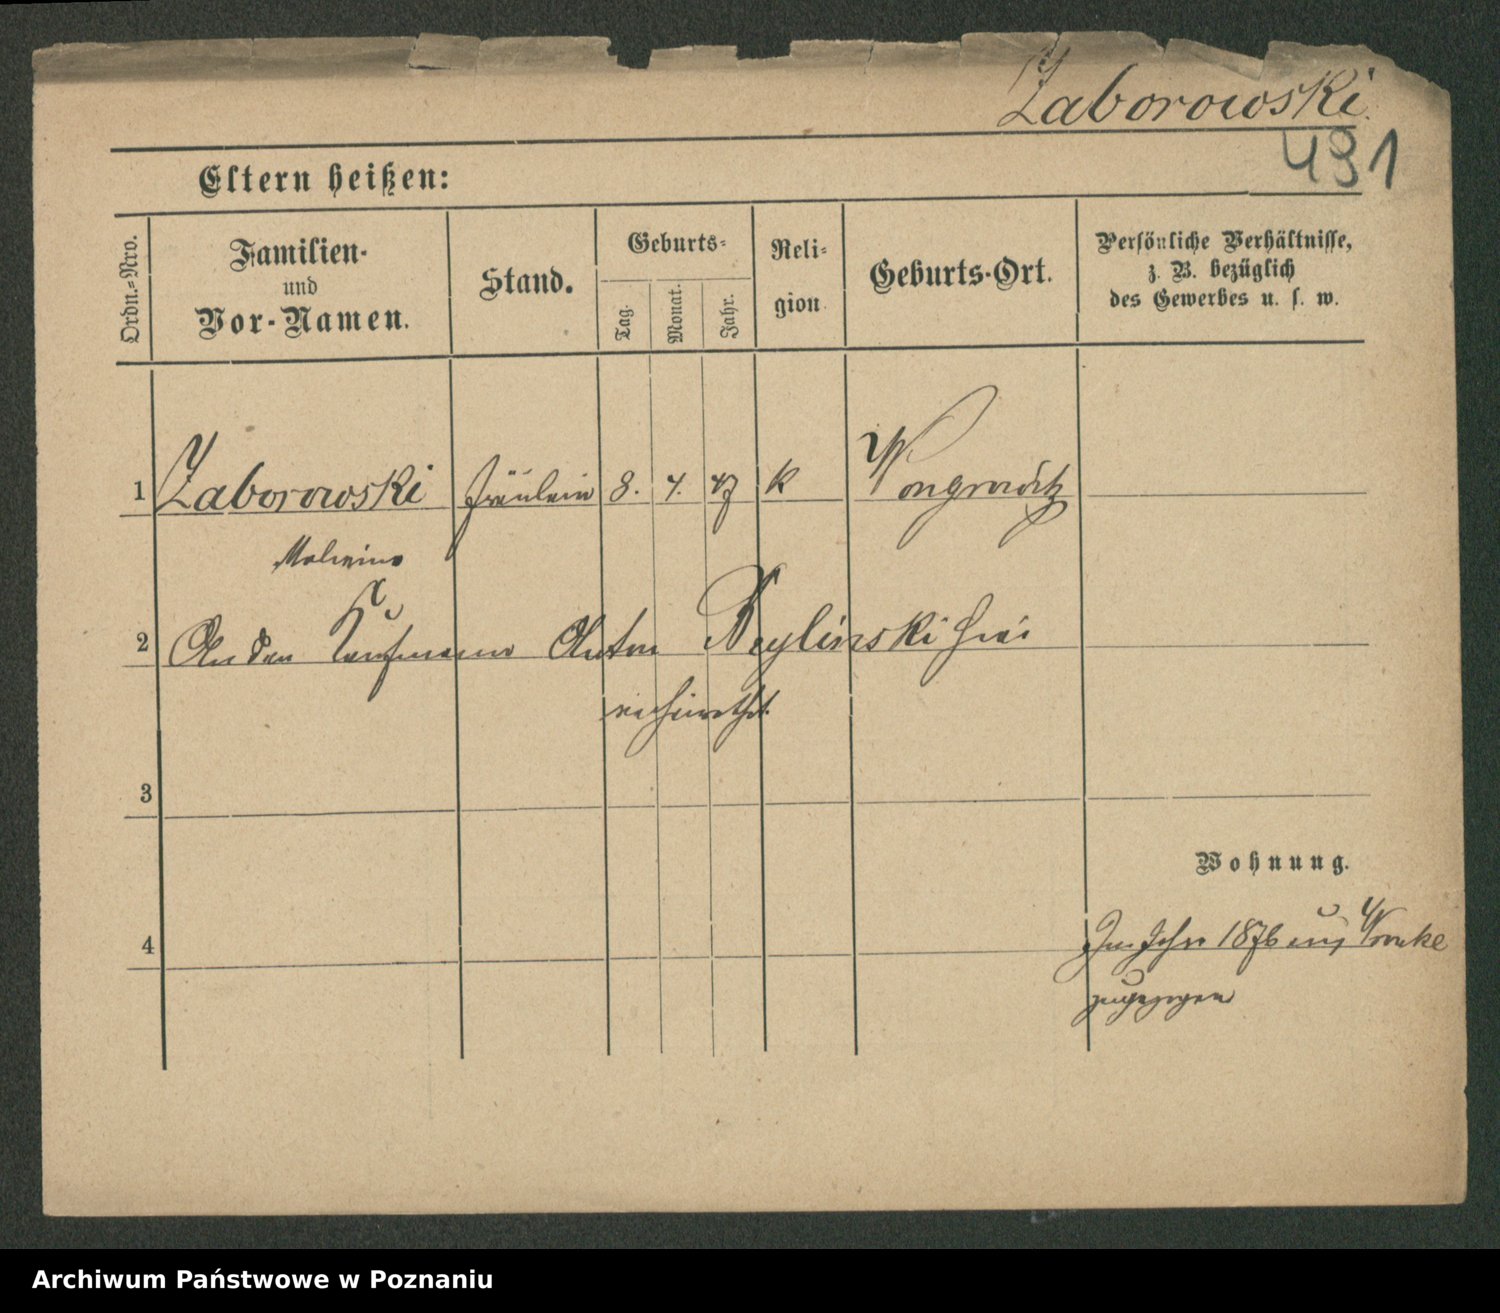 Zaborowski.
491
Eltern heißen:
Ordn.=Nro.
Familien-
und
Vor-Namen.
Stand.
Geburts-
Tag.
Monat.
Jahr.
Reli-
gion
Geburts-Ort.
Persönliche Verhältnisse,
z. B. bezüglich
des Gewerbes u. s. w.
1 Zaborowski Fräulein 8. 4. 47 K Wongrowitz
Malwine
2 An den Kaufmann Anton hier
verheirathet.
3
Wohnung.
4 Im Jahre 1876 aus Wronke
zugezogen
Archiwum Państwowe w Poznaniu